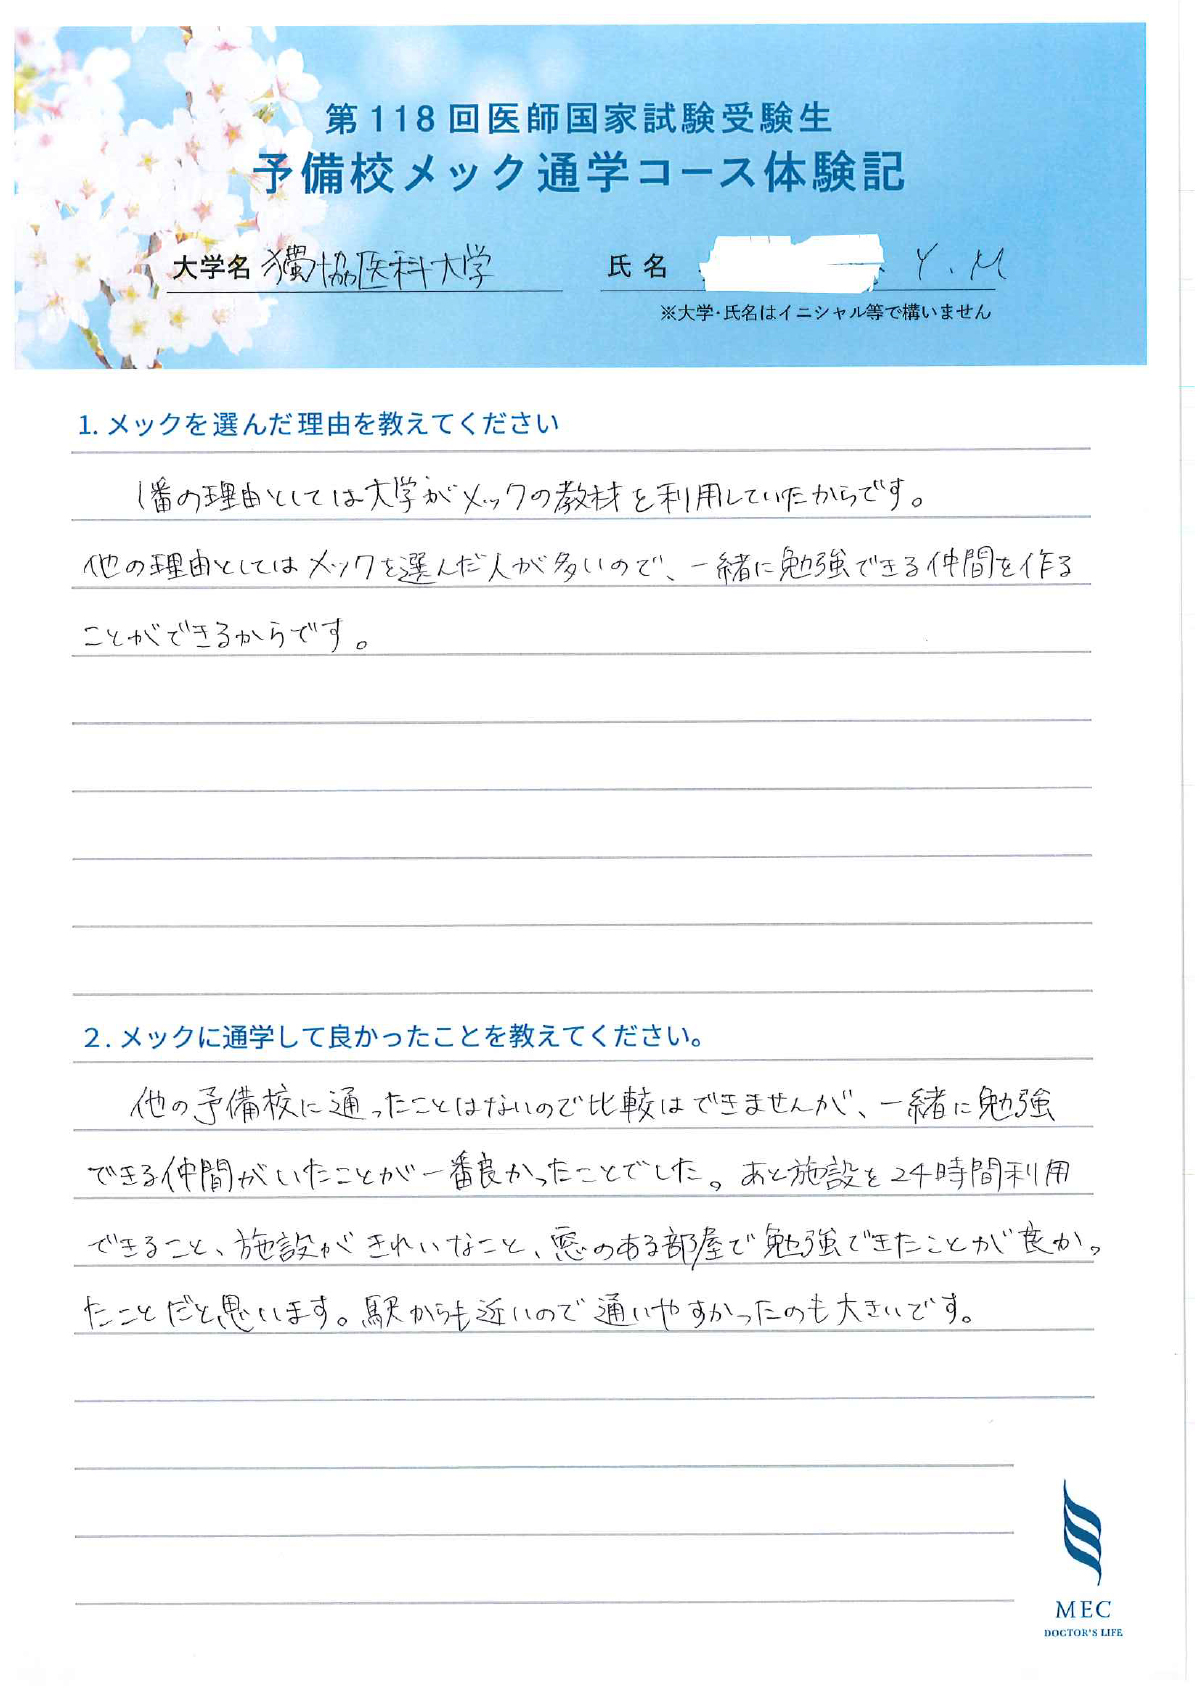 第118回医師国家試験受験生
予備校メック通学コース体験記
大学名 獨協医科大学 氏名 Y.M
※大学・氏名はイニシャル等で構いません
1. メックを選んだ理由を教えてください
1番の理由としては大学がメックの教材を利用していたからです。
他の理由としてはメックを選んだ人が多いので、一緒に勉強できる仲間を作る
ことができるからです。
2. メックに通学して良かったことを教えてください。
他の予備校に通ったことはないので比較はできませんが、一緒に勉強
できる仲間がいたことが一番良かったことでした。あと施設を24時間利用
できること、施設がきれいなこと、窓のある部屋で勉強できたことが良かっ
たことだと思います。駅からも近いので通いやすかったのも大きいです。
MEC
DOCTOR'S LIFE